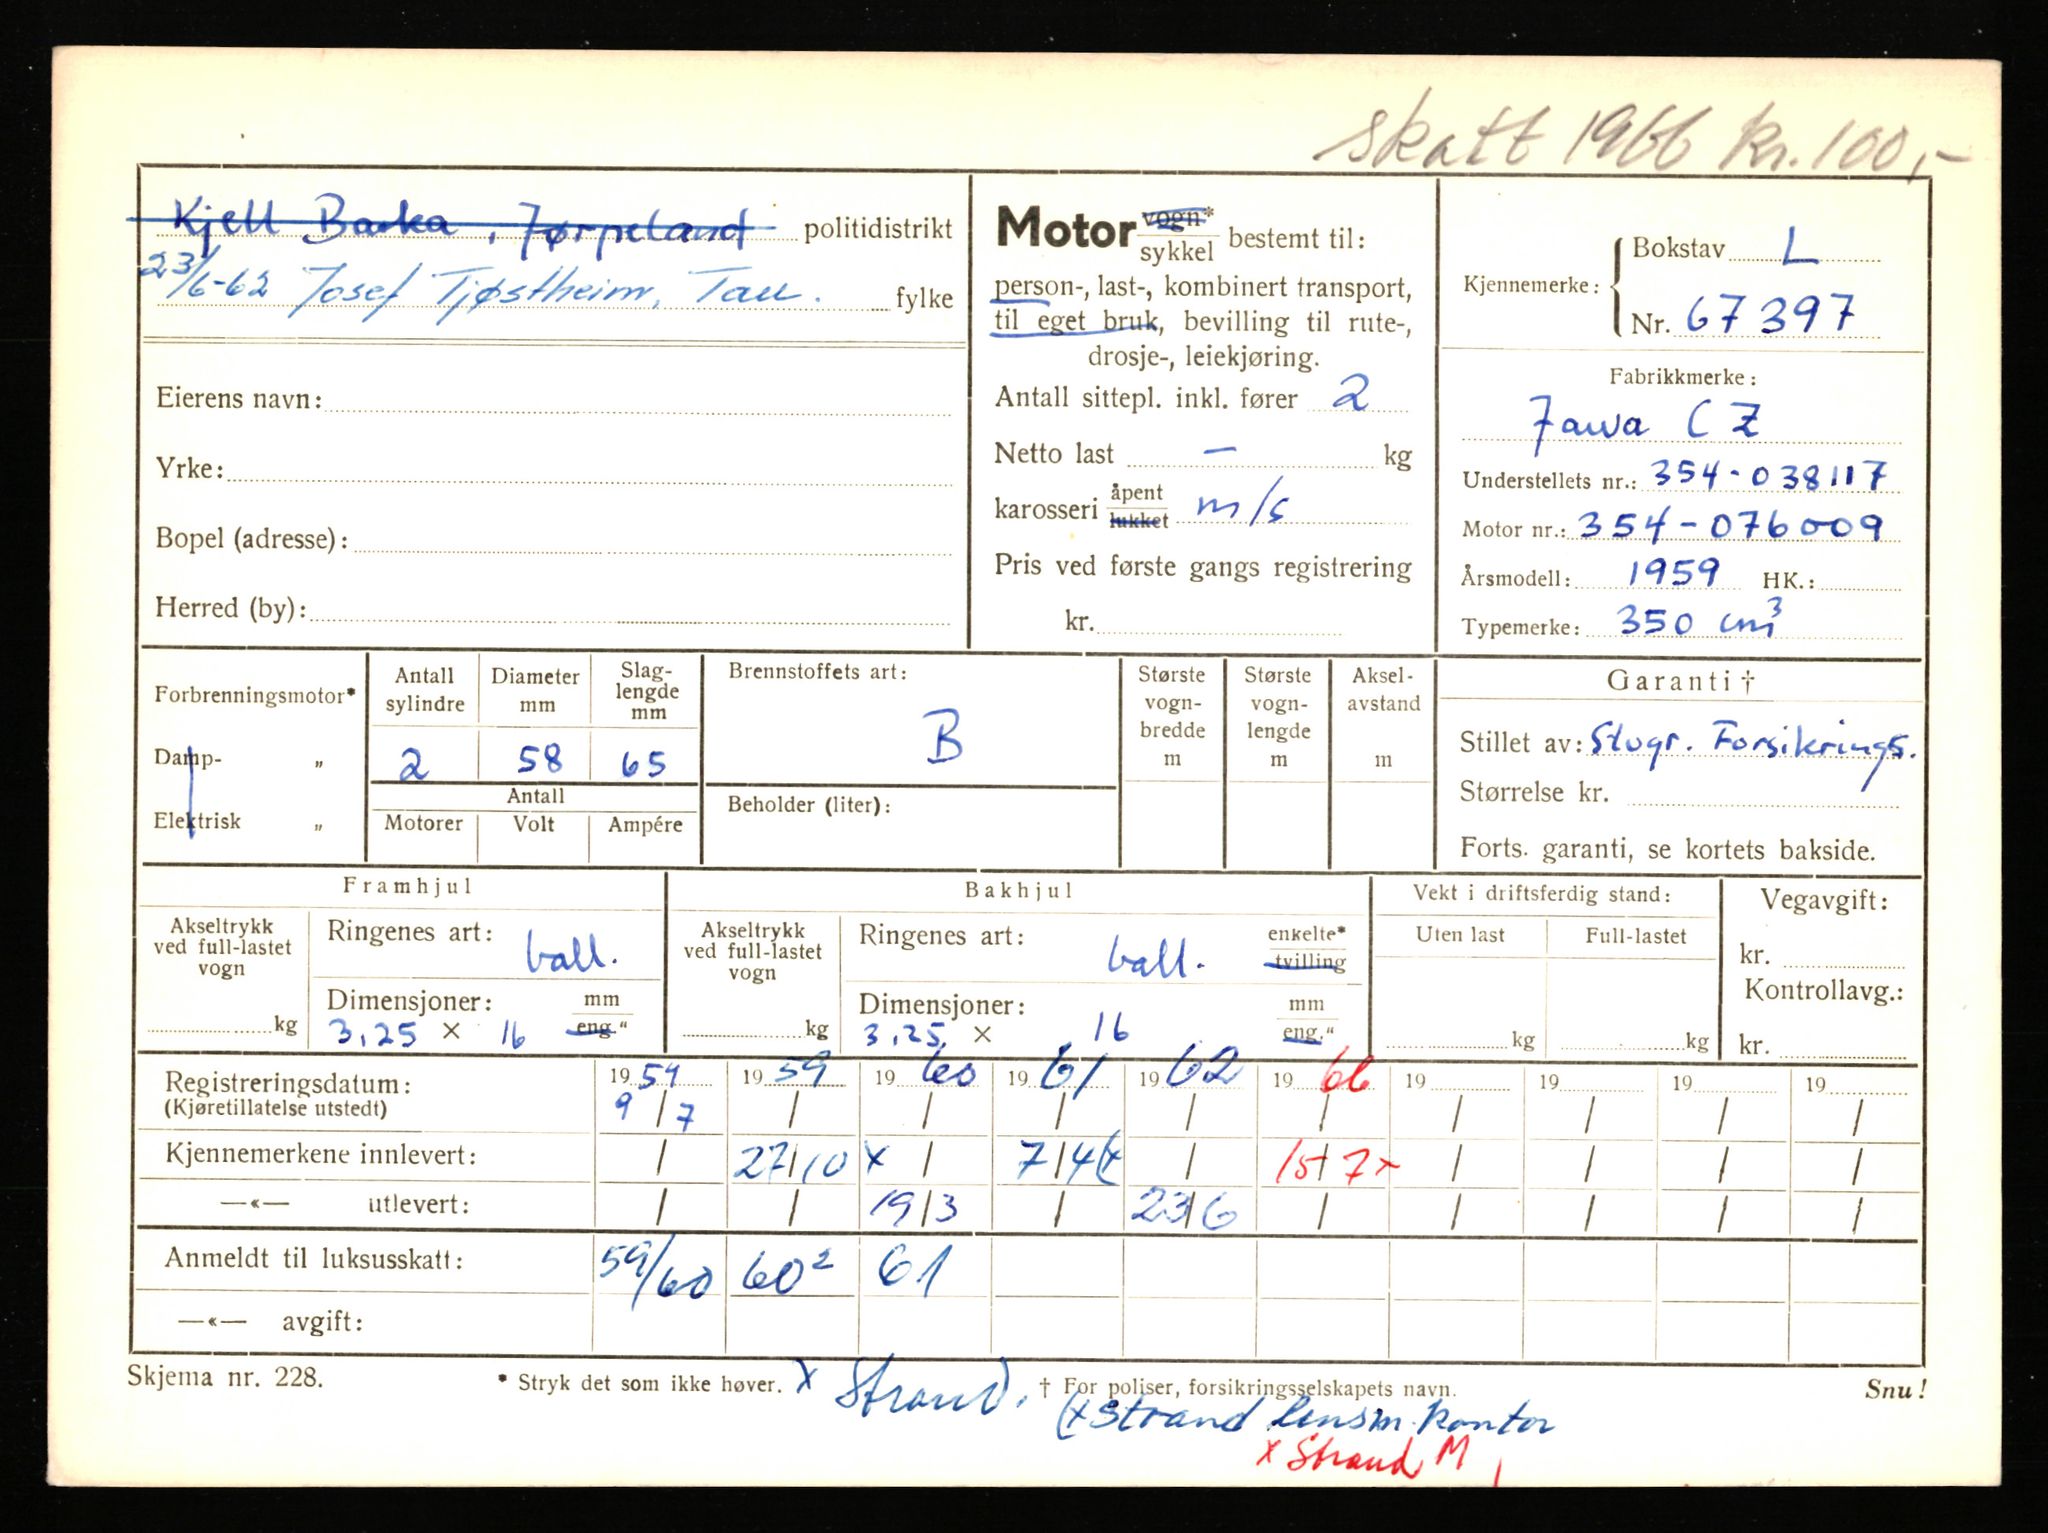 skatt 1966 kr. 100,-
Kjell Barka, Jørpeland politidistrikt
23/6-62 Josef Tjøstheim, Tau. fylke
Eierens navn:
Yrke:
Bopel (adresse):
Herred (by):
Motor vogn* sykkel bestemt til:
person-, last-, kombinert transport,
til eget bruk, bevilling til rute-,
drosje-, leiekjøring.
Antall sittepl. inkl. fører 2
Netto last - kg
karosseri åpent lukket m/s
Pris ved første gangs registrering
kr.
Kjennemerke: Bokstav L
Nr. 67397
Fabrikkmerke:
Jawa CZ
Understellets nr.: 354-038117
Motor nr.: 354-076009
Årsmodell: 1959 HK.:
Typemerke: 350 cm³
Forbrenningsmotor*
Damp- „
Elektrisk „
Antall sylindre 2
Diameter mm 58
Slaglengde mm 65
Antall
Motorer Volt Ampére
Brennstoffets art:
B
Beholder (liter):
Største vognbredde m
Største vognlengde m
Akselavstand m
Garanti †
Stillet av: Stvgr. Forsikrings.
Størrelse kr.
Forts. garanti, se kortets bakside.
Framhjul
Akseltrykk ved full-lastet vogn
kg
Ringenes art: ball.
Dimensjoner: mm eng."
3,25 × 16
Bakhjul
Akseltrykk ved full-lastet vogn
kg
Ringenes art: ball. enkelte* tvilling
Dimensjoner: mm eng."
3.25 × 16
Vekt i driftsferdig stand:
Uten last Full-lastet
kg kg
Vegavgift:
kr.
Kontrollavg.:
kr.
Registreringsdatum: 1959 1959 1960 1961 1962 1966 19 19 19 19
(Kjøretillatelse utstedt) 9/7 / / / / / / / / /
Kjennemerkene innlevert: / 27/10 x / 7/4 (x / 15/7 x / / / /
—«— utlevert: / / 19/3 / 23/6 / / / / /
Anmeldt til luksusskatt: 59/60 60² 61
—«— avgift:
Skjema nr. 228. * Stryk det som ikke høver. x Strand. † For poliser, forsikringsselskapets navn. Snu!
(x Strand lensm. kontor
x Strand M